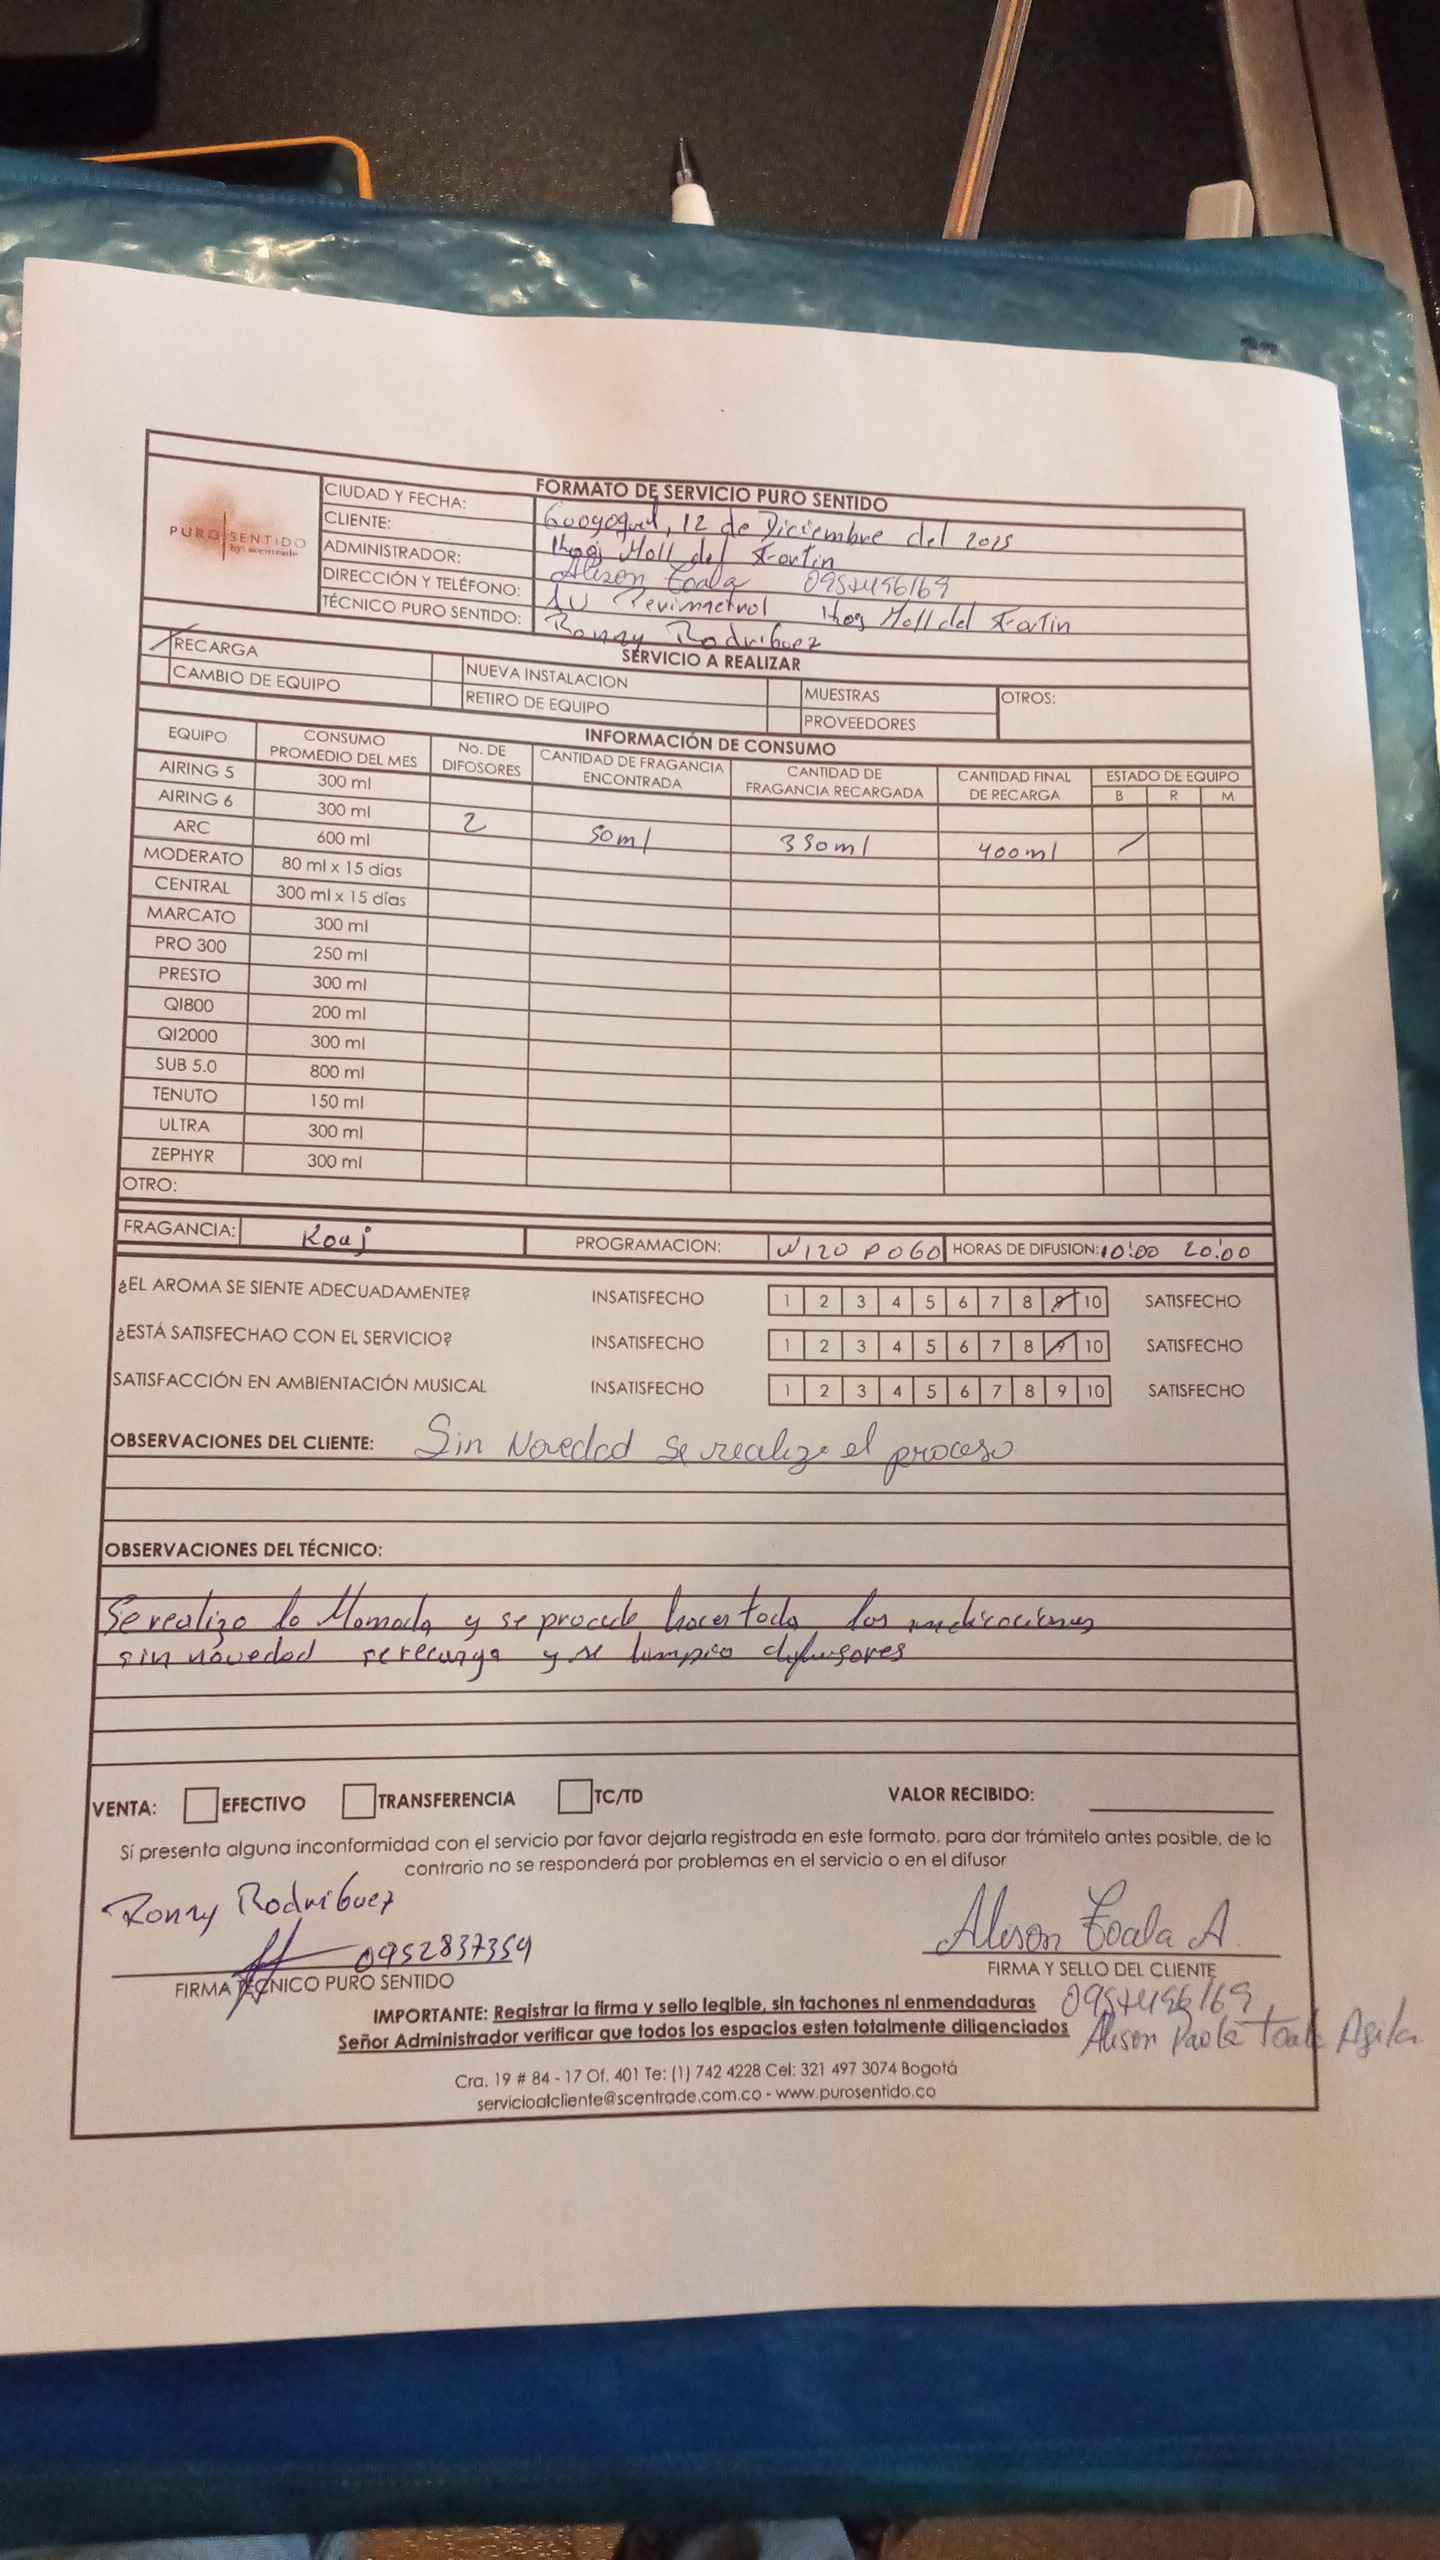 FORMATO DE SERVICIO PURO SENTIDO
PURO SENTIDO
by scentrade
CIUDAD Y FECHA: Guayaquil, 12 de Diciembre del 2025
CLIENTE: Mall del Fortin
ADMINISTRADOR: Alison Toala
DIRECCIÓN Y TELÉFONO: Av Perimetral Mall del Fortin
TÉCNICO PURO SENTIDO: Ronny Rodriguez
SERVICIO A REALIZAR
RECARGA NUEVA INSTALACION MUESTRAS OTROS:
CAMBIO DE EQUIPO RETIRO DE EQUIPO PROVEEDORES
INFORMACIÓN DE CONSUMO
EQUIPO CONSUMO PROMEDIO DEL MES No. DE DIFOSORES CANTIDAD DE FRAGANCIA ENCONTRADA CANTIDAD DE FRAGANCIA RECARGADA CANTIDAD FINAL DE RECARGA ESTADO DE EQUIPO
B R M
AIRING 5 300 ml
AIRING 6 300 ml
ARC 600 ml 2 50ml 350ml 400ml
MODERATO 80 ml x 15 días
CENTRAL 300 ml x 15 días
MARCATO 300 ml
PRO 300 250 ml
PRESTO 300 ml
QI800 200 ml
QI2000 300 ml
SUB 5.0 800 ml
TENUTO 150 ml
ULTRA 300 ml
ZEPHYR 300 ml
OTRO:
FRAGANCIA: Kouj PROGRAMACION: W120 P060 HORAS DE DIFUSION: 10:00 20:00
¿EL AROMA SE SIENTE ADECUADAMENTE? INSATISFECHO 1 2 3 4 5 6 7 8 9 10 SATISFECHO
¿ESTÁ SATISFECHAO CON EL SERVICIO? INSATISFECHO 1 2 3 4 5 6 7 8 9 10 SATISFECHO
SATISFACCIÓN EN AMBIENTACIÓN MUSICAL INSATISFECHO 1 2 3 4 5 6 7 8 9 10 SATISFECHO
OBSERVACIONES DEL CLIENTE: Sin Novedad se realizo el proceso
OBSERVACIONES DEL TÉCNICO:
Se realizo la llamada y se procede hacer toda las indicaciones
sin novedad se recarga y se limpio difusores
VENTA: EFECTIVO TRANSFERENCIA TC/TD VALOR RECIBIDO:
Sí presenta alguna inconformidad con el servicio por favor dejarla registrada en este formato, para dar trámitelo antes posible, de lo
contrario no se responderá por problemas en el servicio o en el difusor
Ronny Rodriguez
0952837354
Alison Toala A
FIRMA TÉCNICO PURO SENTIDO
FIRMA Y SELLO DEL CLIENTE
IMPORTANTE: Registrar la firma y sello legible, sin tachones ni enmendaduras
Señor Administrador verificar que todos los espacios esten totalmente diligenciados
Alison Paola Toala Agila
Cra. 19 # 84 - 17 Of. 401 Te: (1) 742 4228 Cel: 321 497 3074 Bogotá
servicioalcliente@scentrade.com.co - www.purosentido.co